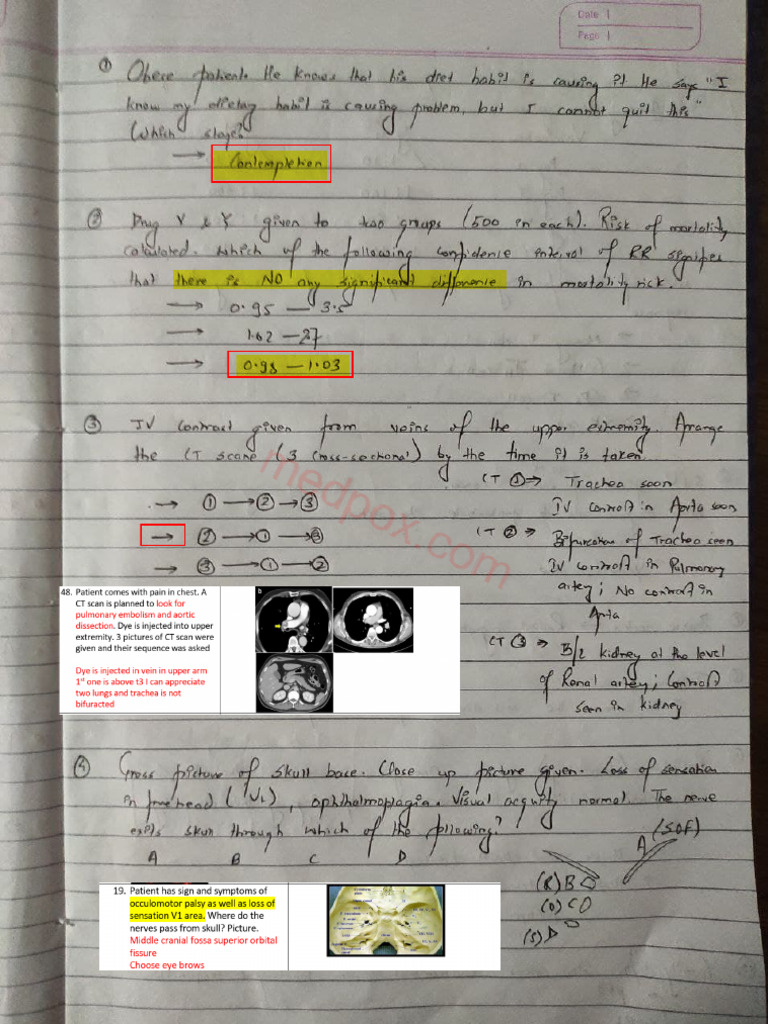 Date
Page
① Obese patient. He knows that his diet habit is causing it. He says "I
know my dietary habit is causing problem, but I cannot quit this"
Which stage?
→ Contempletion
② Drug X & Y given to two groups (500 in each). Risk of mortality
calculated. Which of the following confidence interval of RR signifies
that there is NO any significant difference in mortality risk.
→ 0.95 — 3.5
→ 1.02 — 27
→ 0.98 — 1.03
③ IV contrast given from veins of the upper extremity. Arrange
the CT scans (3 cross-sectional) by the time it is taken.
→ ① → ② → ③
→ ② → ① → ③
→ ③ → ① → ②
CT ① ⇒ Trachea seen
IV contrast in Aorta seen
CT ② ⇒ Bifurcation of Trachea seen
IV contrast in Pulmonary
artery; No contrast in
Aorta
CT ③ ⇒ B/L kidney at the level
of Renal artery; Contrast
seen in kidney
medpox.com
48. Patient comes with pain in chest. A
CT scan is planned to look for
pulmonary embolism and aortic
dissection. Dye is injected into upper
extremity. 3 pictures of CT scan were
given and their sequence was asked
Dye is injected in vein in upper arm
1st one is above t3 I can appreciate
two lungs and trachea is not
bifuracted
b
④ Gross picture of skull base. Close up picture given. Loss of sensation
in forehead (V1), ophthalmoplagia. Visual acquity normal. The nerve
exits skull through which of the following?
A B C D
A (SOF)
(R) B
(O) C
(S) D
19. Patient has sign and symptoms of
occulomotor palsy as well as loss of
sensation V1 area. Where do the
nerves pass from skull? Picture.
Middle cranial fossa superior orbital
fissure
Choose eye brows